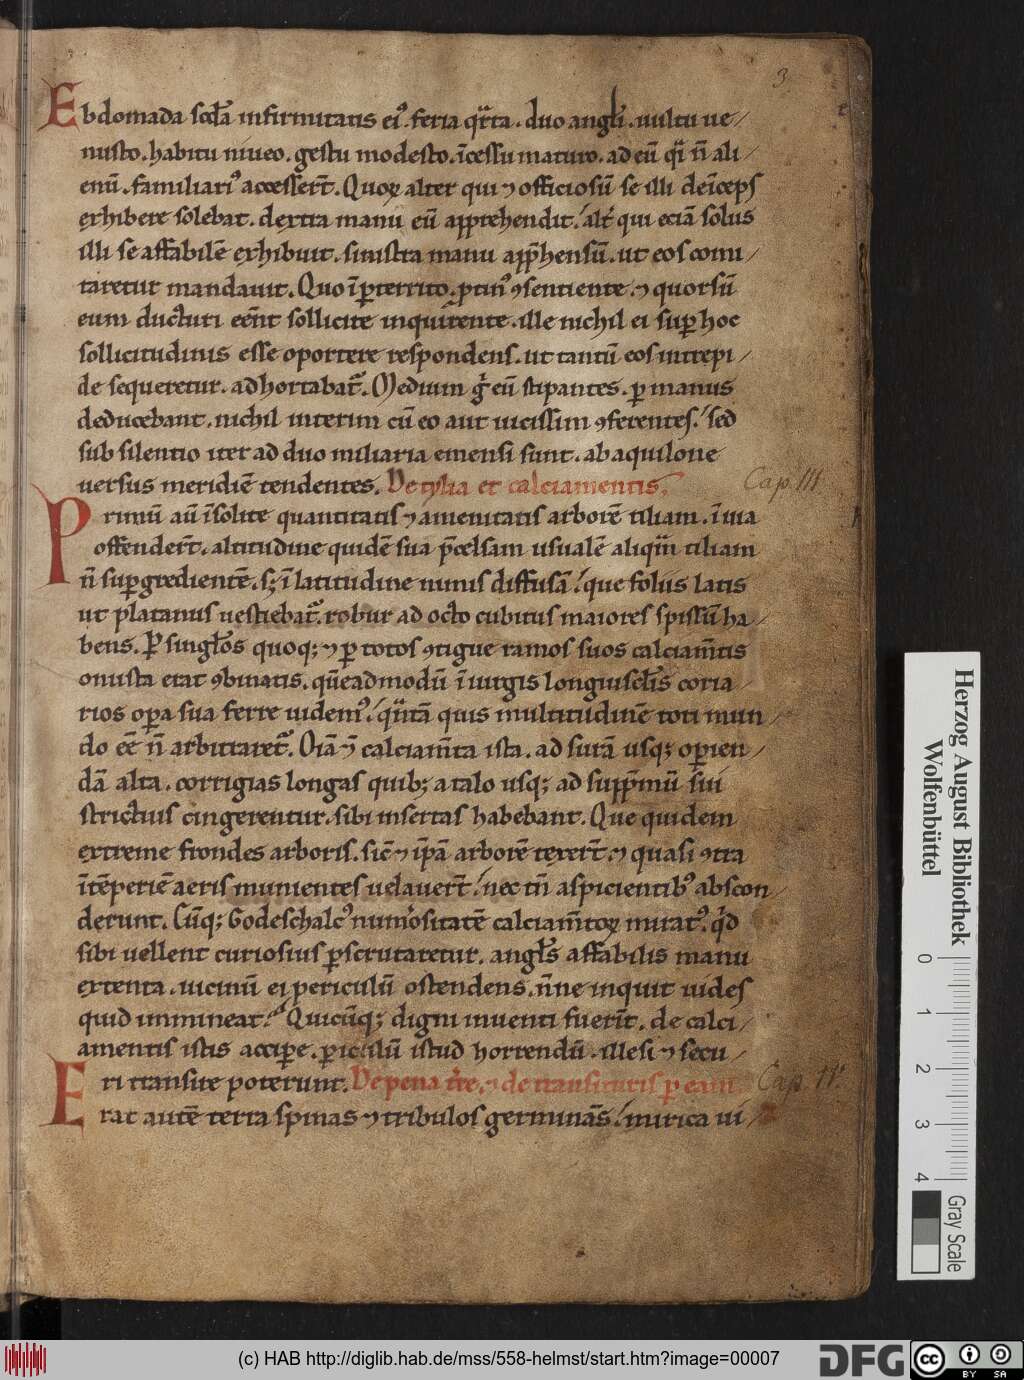 3
Ebdomada scđa infirmitatis eiꝰ. feria qͣrta. duo angli. uultu ue/
nusto. habitu niueo. gestu modesto. īcessu maturo. ad eū q̄ͥ n̄ ali/
enū. familiariꝰ accesser̄t. Quoꝝ alter qui ⁊ officiosū se illi deīceps
exhibere solebat. dextra manu eū apprehendit. alt̄ qui eciā solus
illi se affabilē exhibuit. sinistra manu app̄hensū. ut eos comi/
taretur mandauit. Quo īꝑterrito. ꝓtinꝰ ꝯsentiente. ⁊ quorsū
eum ducturi eēnt sollicite inquirente. ille nichil ei suꝑ hoc
sollicitudinis esse oportere respondens. ut tantū eos intrepi/
de sequeretur. adhortabat᷑. Medium gͥ eū stipantes. ꝑ manus
deducebant. nichil interim cū eo aut uicissim ꝯferentes. sed
sub silentio iter ad duo miliaria emensi sunt. ab aquilone
uersus meridiē tendentes. De tylia et calciamentis.
Cap. III
Primū aū īsolite quantitatis ⁊ amenitatis arborē tiliam. ī uia
offender̄t. altitudine quidē sua p̄celsam usualē aliqͣm tiliam
n̄ suꝑgredientē. sꝫ ī latitudine nimis diffusā. que folus latis
ut platanus uestiebat᷑. robur ad octo cubitus maiores spissū ha/
bens. Ꝑ singlōs quoqꝫ ⁊ ꝑ totos ꝯtigue ramos suos calciam̄tis
onusta erat ꝯbinatis. quēadmodū ī uirgis longiuscl̄is coria/
rios oꝑa sua ferre uidemꝰ. qͣntā quis multitudinē toti mun/
do eē n̄ arbitraret᷑. Oīa ⁊ calciam̄ta ista. ad surā usqꝫ oꝑien/
dā alta. corrigias longas quibꝫ a talo usqꝫ ad supp̄mū sui
strictius cingerentur. sibi insertas habebant. Que quidem
extreme frondes arboris. sic̄ ⁊ ip̄ā arborē texer̄t. ⁊ quasi ꝯtra
ītēperiē aeris munientes uelauer̄t. nec tn̄ aspicientibꝰ abscon/
derunt. Cūqꝫ Godeschalcꝰ num̄ositatē calciam̄toꝝ miratꝰ. qͥd
sibi uellent curiosius ꝑscrutaretur. angl̄s affabilis manu
extenta. uicinū ei periculū ostendens. n̄ne inquit uides
quid immineat. Quicūqꝫ digni inuenti fuer̄t. de calci/
amentis istis acciꝑe. ꝑiculū istud horrendū. illesi ⁊ secu/
ri transire poterunt. De pena t̄re. ⁊ de transituris ꝑ eam
Cap. IIII
Erat autē terra spinas ⁊ tribulos germinās. mirica ui/
Herzog August Bibliothek
Wolfenbüttel
0 1 2 3 4
Gray Scale
(c) HAB http://diglib.hab.de/mss/558-helmst/start.htm?image=00007
DFG
cc BY SA